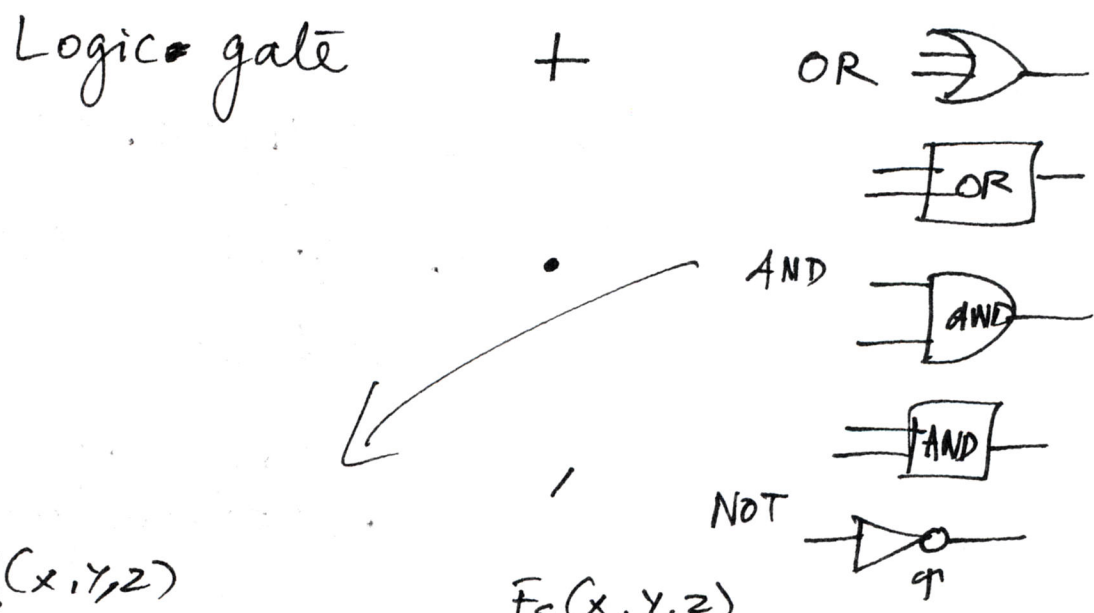 Logic gate + OR
OR
• AND
AND
AND
/ NOT
(x,y,z) (x,y,z)